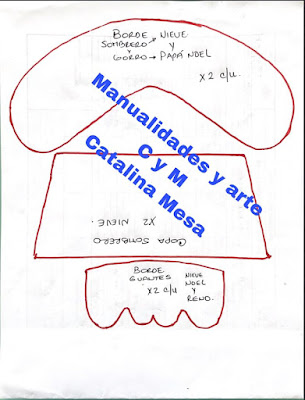 BORDE → NIEVE
SOMBRERO Y
Y
GORRO → PAPÁ NOEL
X2 c/u.
Manualidades y arte
C y M
Catalina Mesa
COPA SOMBRERO
X2 NIEVE.
BORDE NIEVE
GUANTES NOEL
X2 c/u Y
RENO.